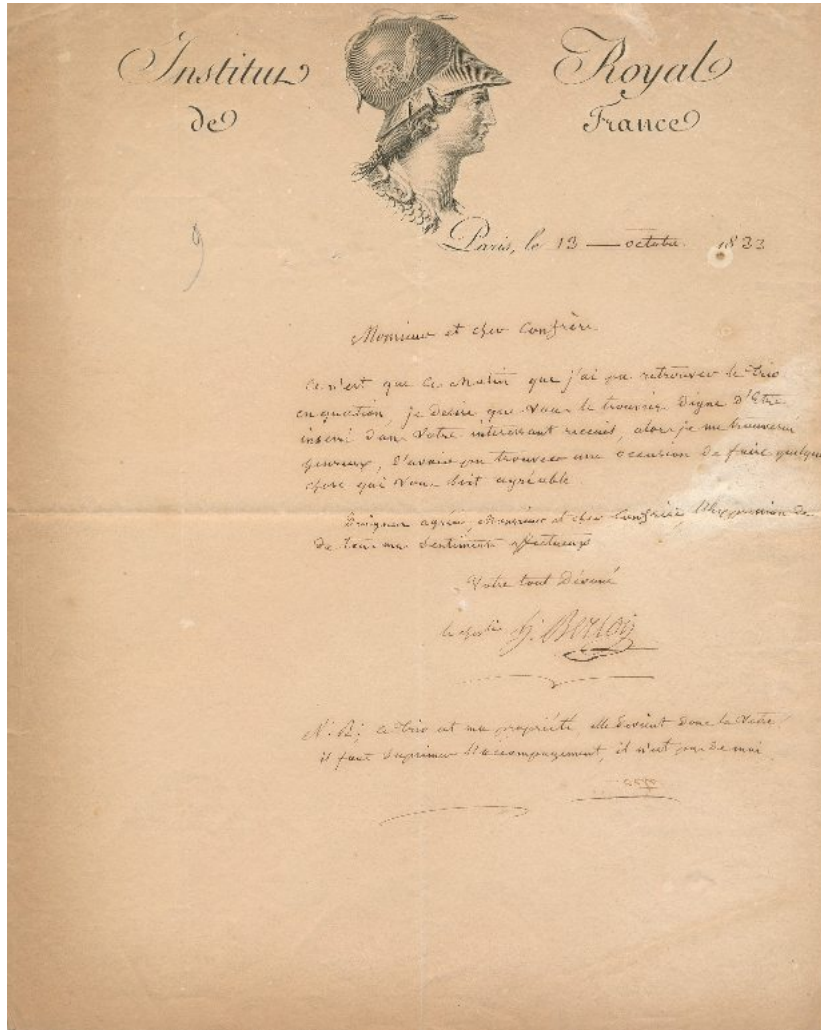 Institut Royal
de France
Paris, le 13 octobre 1833
Monsieur et cher Confrère
Ce n'est que ce matin que j'ai pu retrouver le trio
en question, je desire que vous le trouviez Digne D'Etre
inseré dans votre interessant recueil, alors je me trouverai
heureux, d'avoir pu trouver une occasion de faire quelque
chose qui vous soit agréable
Daignez agréer, Monsieur et cher Confrère, l'expression de
de tous mes sentiments affectueux
Votre tout Dévoué
le chev. h. Berton
N. B; ce trio est ma propriété, elle devient donc la vôtre
il faut suprimer l'accompagnement, il n'est pas de moi